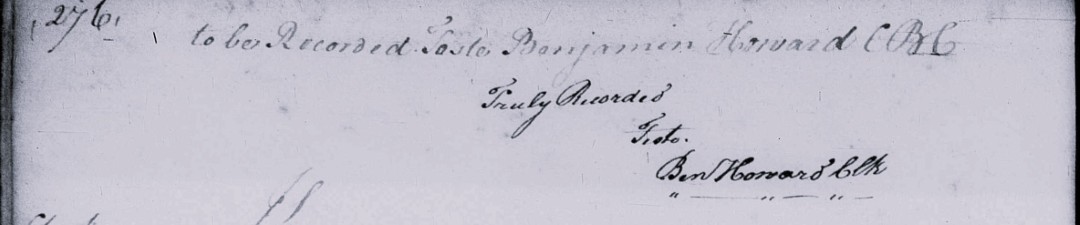 276
to be Recorded Teste Benjamin Howard CBC
Truly Recorded
Teste.
Ben Howard Clk